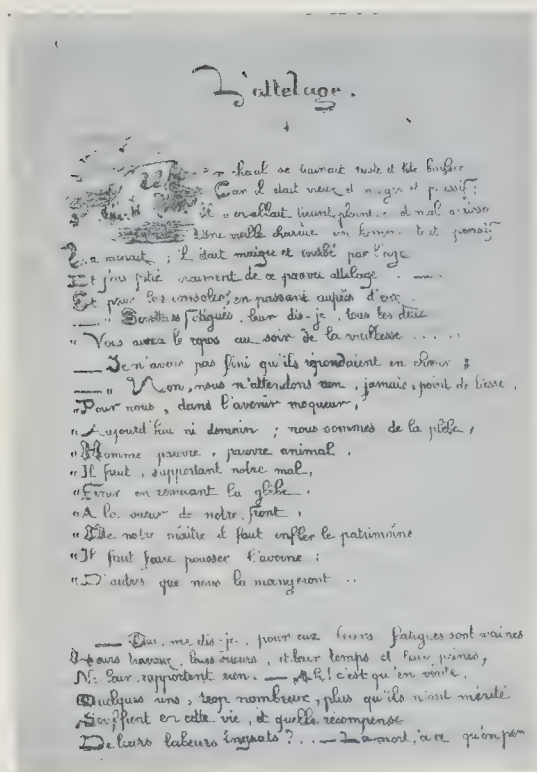 L'attelage.
haut se trainait triste et tête
Car il était vieux et maigre et poussif ;
Il s'en allait tirant et mal
Une vieille charrue un homme tout pensif
La menait ; il était maigre et courbé par l'age
Et j'eus pitié vraiment de ce pauvre attelage . —.
Et pour les consoler, en passant auprès d'eux.
— " Serviteurs fatigués, leur dis-je, tous les deux
" Vous aurez le repos au soir de la vieillesse . . . . .
— Je n'avais pas fini qu'ils répondaient en chœur ;
— " Non, nous n'attendons rien, jamais, point de liesse,
" Pour nous, dans l'avenir moqueur,
" Aujourd'hui ni demain ; nous sommes de la plèbe,
" Homme pauvre, pauvre animal,
" Il faut, supportant notre mal,
" en remuant la glèbe.
" A la sueur de notre front,
" De notre maître il faut enfler le patrimoine
" Il faut faire pousser l'avoine :
" D'autres que nous la mangeront ..
— Oui, me dis-je, pour eux leurs fatigues sont vaines
Leurs travaux, leurs sueurs, et leur temps et leurs peines,
Ne leur rapportent rien. — Ah ! c'est qu'en
Quelques uns, trop nombreux, plus qu'ils n'ont mérité
Souffrent en cette vie, et quelle récompense
De leurs labeurs ingrats ? .. — La mort, à ce qu'on pen